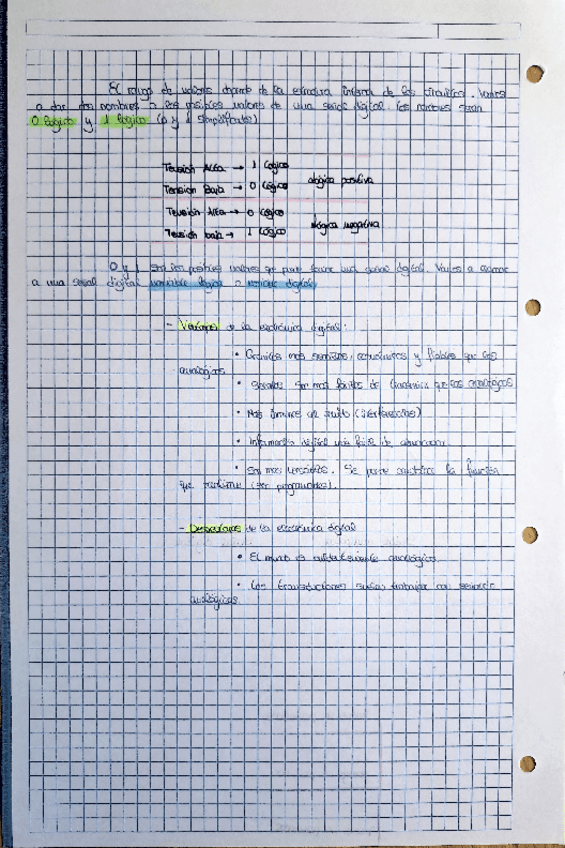 El rango de valores depende de la estructura interna de los circuitos. Vamos
a dar dos nombres a los posibles valores de una señal digital. Los nombres serán
0 lógico y 1 lógico (0 y 1 simplificados)
Tensión Alta → 1 Lógico
Tensión Baja → 0 Lógico
Lógica positiva
Tensión Alta → 0 Lógico
Tensión baja → 1 Lógico
Lógica negativa
0 y 1 son los posibles valores que puede tomar una señal digital. Vamos a llamar
a una señal digital variable lógica o variable digital.
- Ventajas de la electrónica digital:
• Circuitos más sencillos, económicos y fiables que los
analógicos
• Señales son más fáciles de transmitir que las analógicas
• Más inmune al ruido (interferencias)
• Información digital más fácil de almacenar.
• Son más versátiles. Se puede la función
que realizan (ser programados).
- Desventajas de la electrónica digital
• El mundo es analógico
• Los transductores suelen trabajar con señales
analógicas.